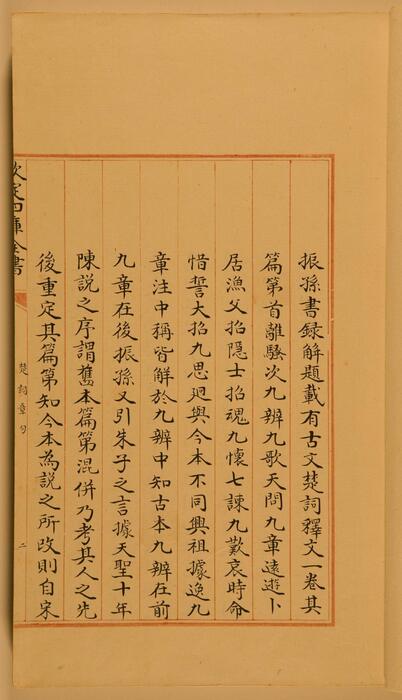 振孫書録解題載有古文楚詞釋文一卷其
篇第首離騷次九辨九歌天問九章遠遊卜
居漁父招隠士招魂九懷七諫九歎哀時命
惜誓大招九思迥與今本不同興祖據逸九
章注中稱皆解於九辨中知古本九辨在前
九章在後振孫又引朱子之言據天聖十年
陳説之序謂舊本篇第混併乃考其人之先
後重定其篇第知今本為説之所改則自宋
欽定四庫全書
楚詞章句
二